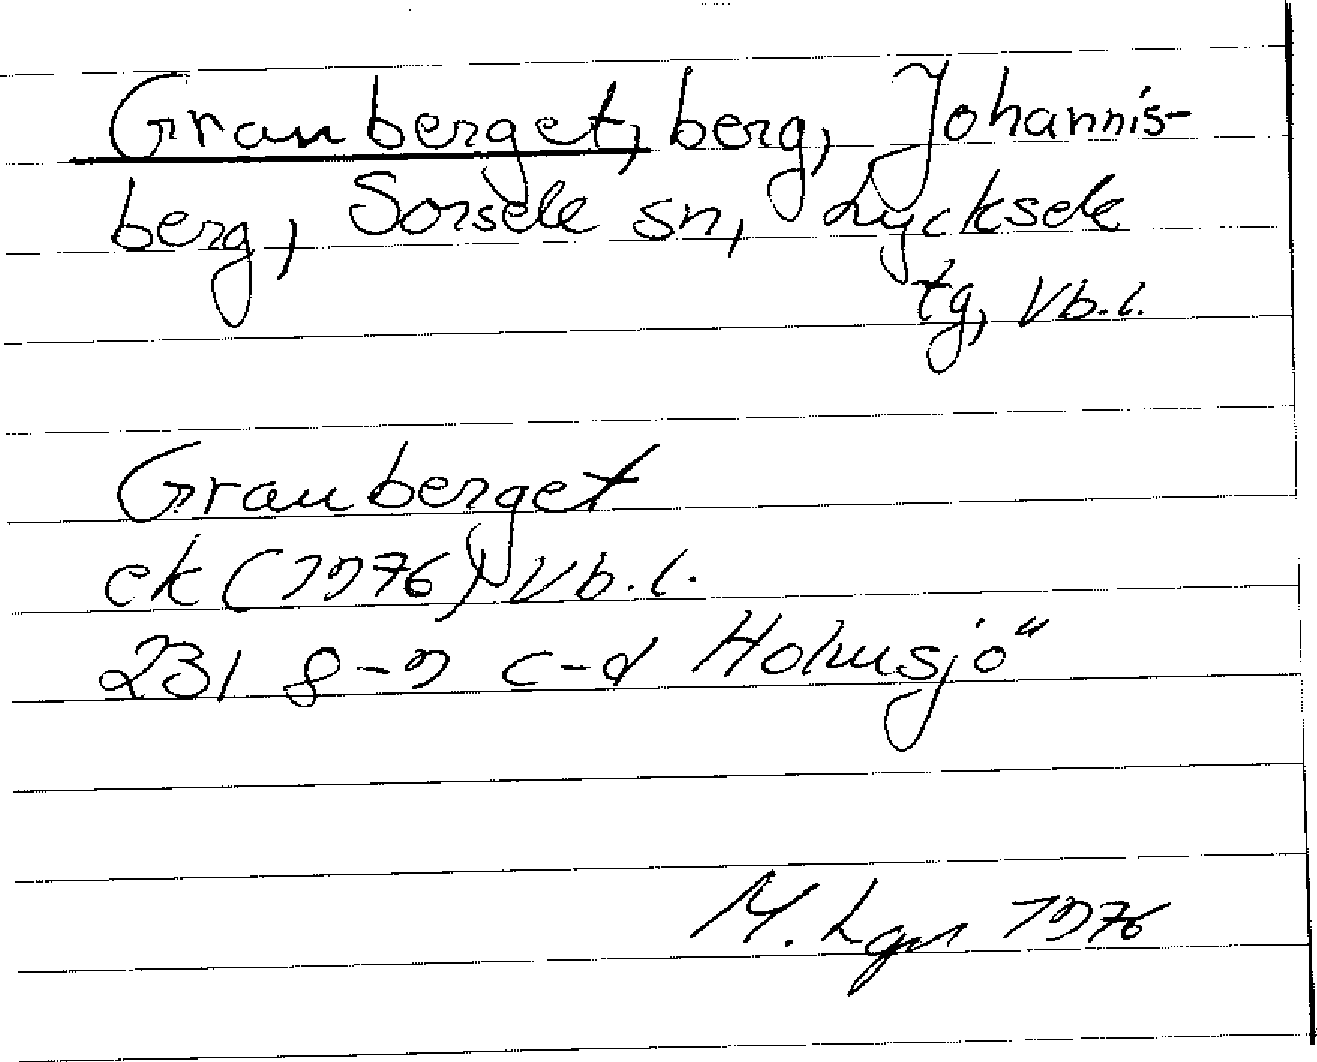 Grauberget, berg, Johannis-
berg, Sorsele sn, Lycksele
tg, Vb.l.
Grauberget
ek (1976) Vb.l.
231 8-9 c-d Holmsjö"
M. Lgn 1976